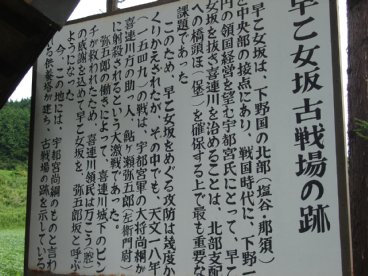 早乙女坂古戦場の跡
早乙女坂は、下野国の北部(塩谷・那須)
と中央部の接点にあり、戦国時代に、下野一
円の領国経営を望む宇都宮氏にとって、早乙
女坂を抜き喜連川を治めることは、北部支配
への橋頭ほ(堡)を確保する上で最も重要な
課題であった
このため、早乙女坂をめぐる攻防は幾度か
くりかえされたが、その中でも、天文一八年
(一五四九)の戦は、宇都宮軍の大将尚綱が
喜連川方の助人、鮎ヶ瀬弥五郎(左衛門尉
に射殺されるという大激戦であった。
弥五郎の働きによって、喜連川城下のピン
チが救われたため、喜連川領民は万こう(腔)
の感謝を込めて早乙女坂を、弥五郎坂と呼ぶ
ようになった
今、この地には、宇都宮尚綱のものと言わ
れる供養塔が建ち、古戦場の跡を示している